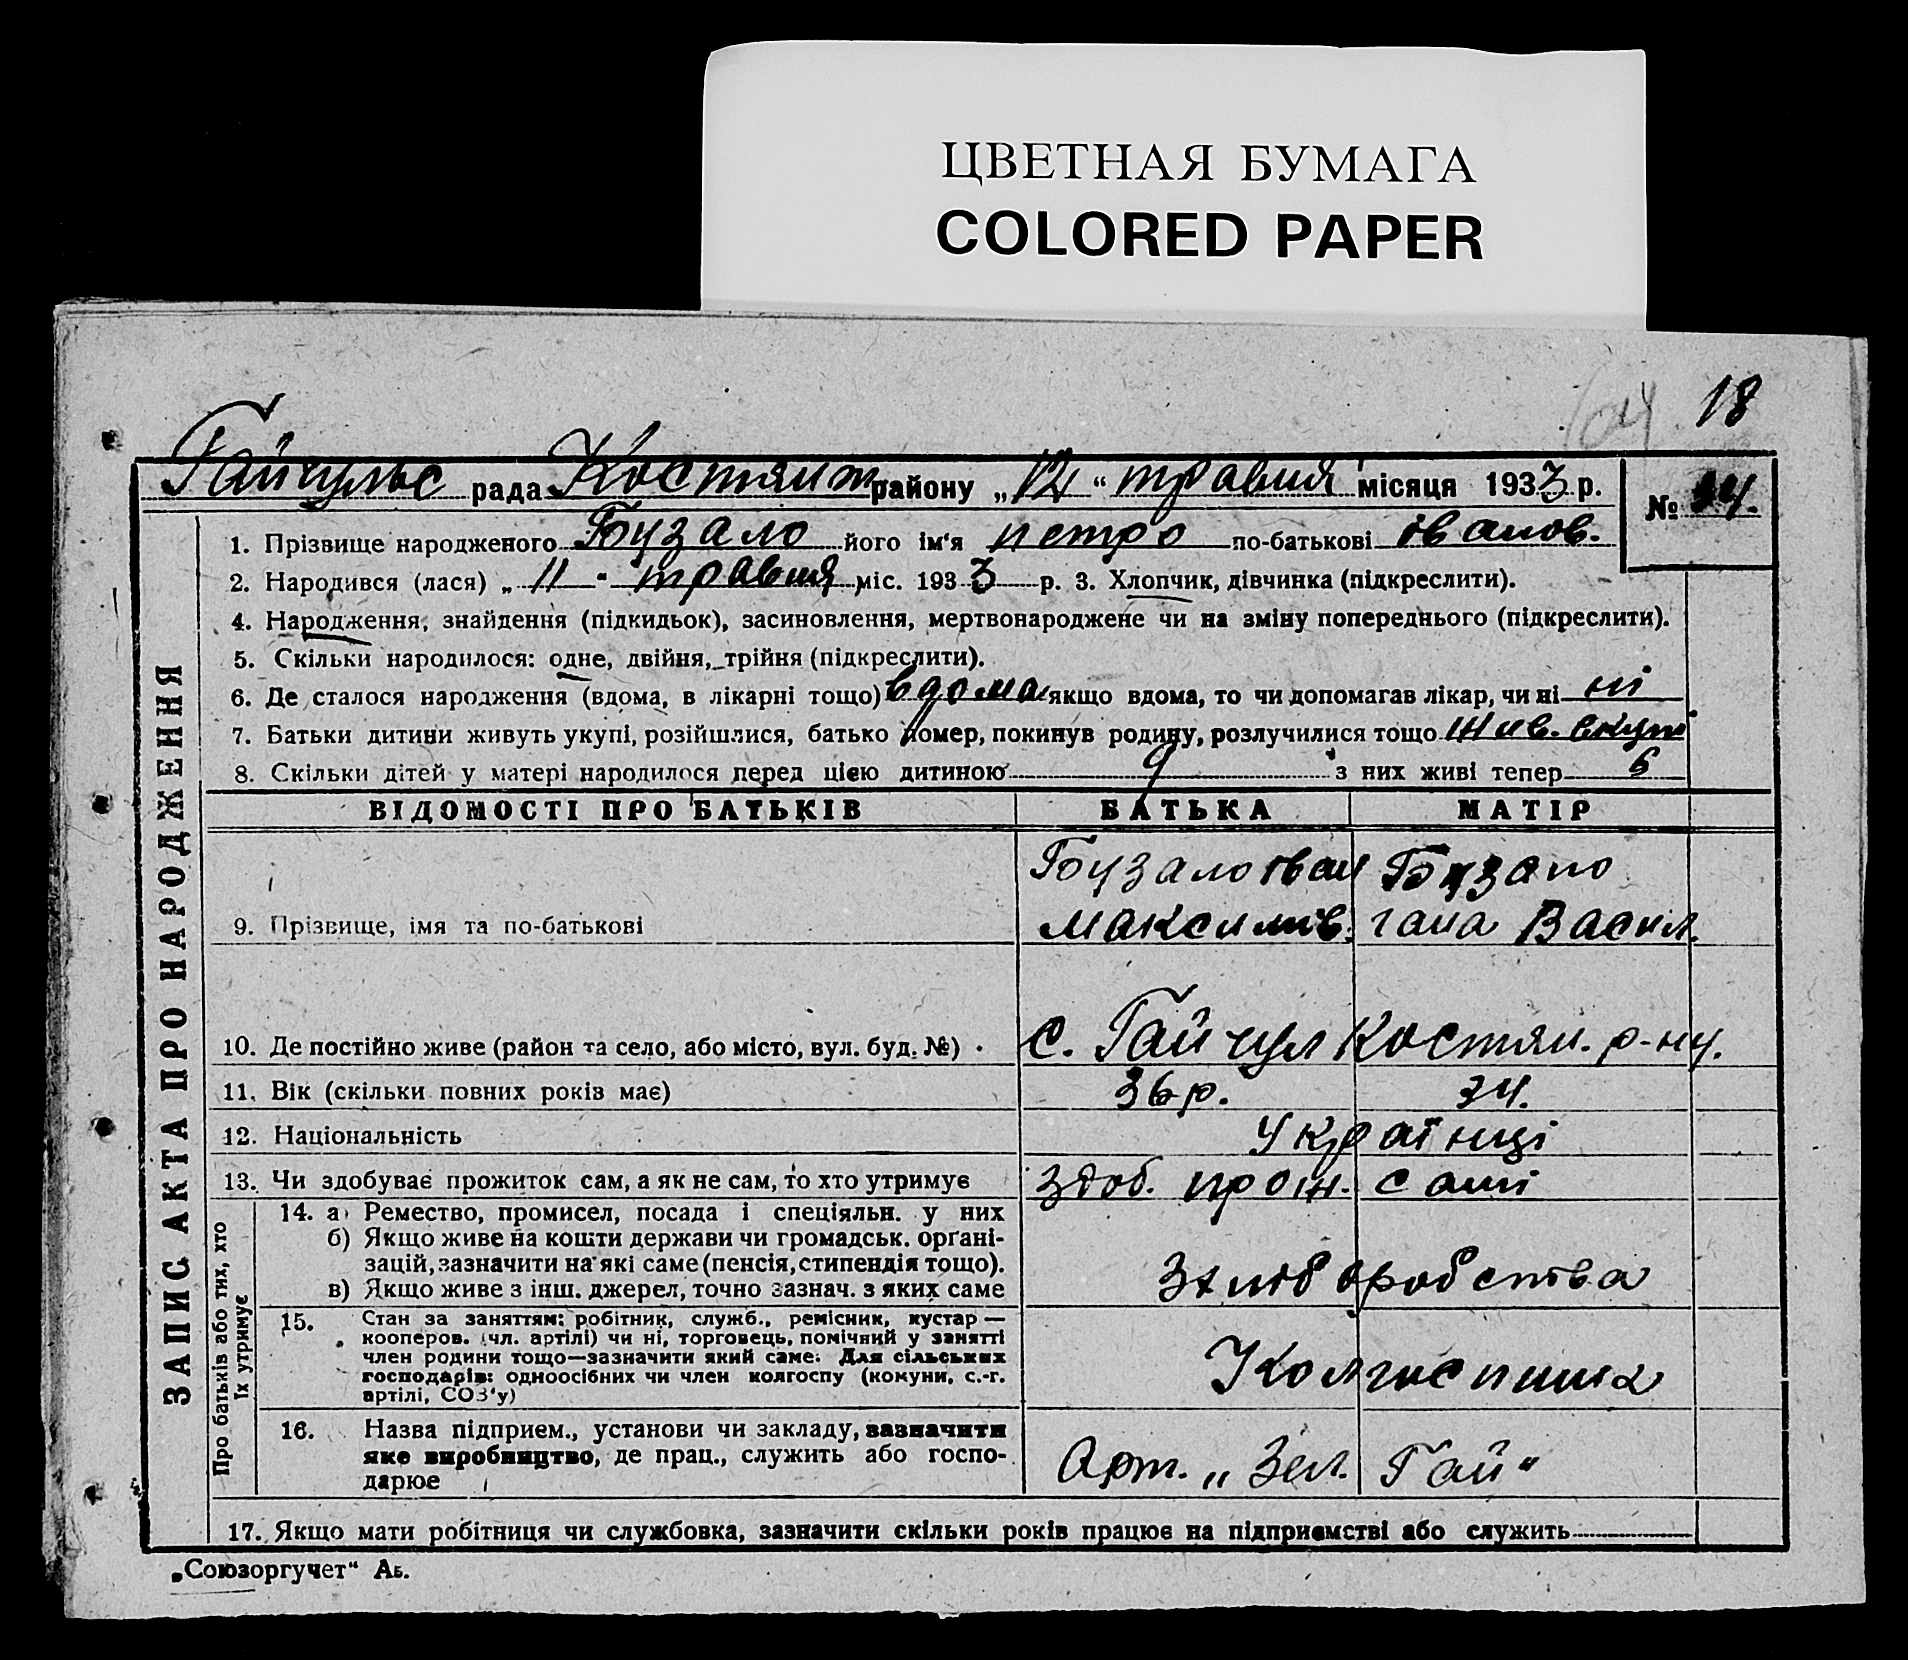 ЦВЕТНАЯ БУМАГА
COLORED PAPER
18
Гайчульс рада Костянт району „12“ травня місяця 1933 р. № 34.
1. Прізвище народженого Бузало його ім‘я петро по-батькові іванов.
2. Народився (лася) „11“ травня міс. 1933 р. 3. Хлопчик, дівчинка (підкреслити).
4. Народження, знайдення (підкидьок), засиновлення, мертвонароджене чи на зміну попереднього (підкреслити).
5. Скільки народилося: одне, двійня, трійня (підкреслити).
6. Де сталося народження (вдома, в лікарні тощо) вдома якщо вдома, то чи допомагав лікар, чи ні ні
7. Батьки дитини живуть укупі, розійшлися, батько помер, покинув родину, розлучилися тощо жив. вкупі
8. Скільки дітей у матері народилося перед цією дитиною 9 з них живі тепер 6
ЗАПИС АКТА ПРО НАРОДЖЕННЯ
ВІДОМОСТІ ПРО БАТЬКІВ БАТЬКА МАТІР
Бузало іван Бузало
9. Прізвище, імя та по-батькові максимів. гана Васил.
10. Де постійно живе (район та село, або місто, вул. буд. №) с. Гайчул Костян. р-ну.
11. Вік (скільки повних років має) 36 р. 34.
12. Національність Українці
13. Чи здобуває прожиток сам, а як не сам, то хто утримує Здоб. прож. самі
Про батьків або тих, хто
їх утримує
14. а) Ремество, промисел, посада і спеціяльн. у них
б) Якщо живе на кошти держави чи громадськ. орґані-
зацій, зазначити на які саме (пенсія, стипендія тощо).
в) Якщо живе з інш. джерел, точно зазнач. з яких саме
З хліборобства
15. Стан за заняттям: робітник, служб., ремісник, кустар —
кооперов. (чл. артілі) чи ні, торговець, помічний у занятті
член родини тощо—зазначити який саме. Для сільських
господарів: одноосібних чи член колгоспу (комуни, с.-г.
артілі, СОЗ‘у)
16. Назва підприєм., установи чи закладу, зазначити
яке виробництво, де прац., служить або госпо-
дарює
Арт. „Зел. Гай“
17. Якщо мати робітниця чи службовка, зазначити скільки років працює на підприємстві або служить
„Союзоргучет“ Аб.